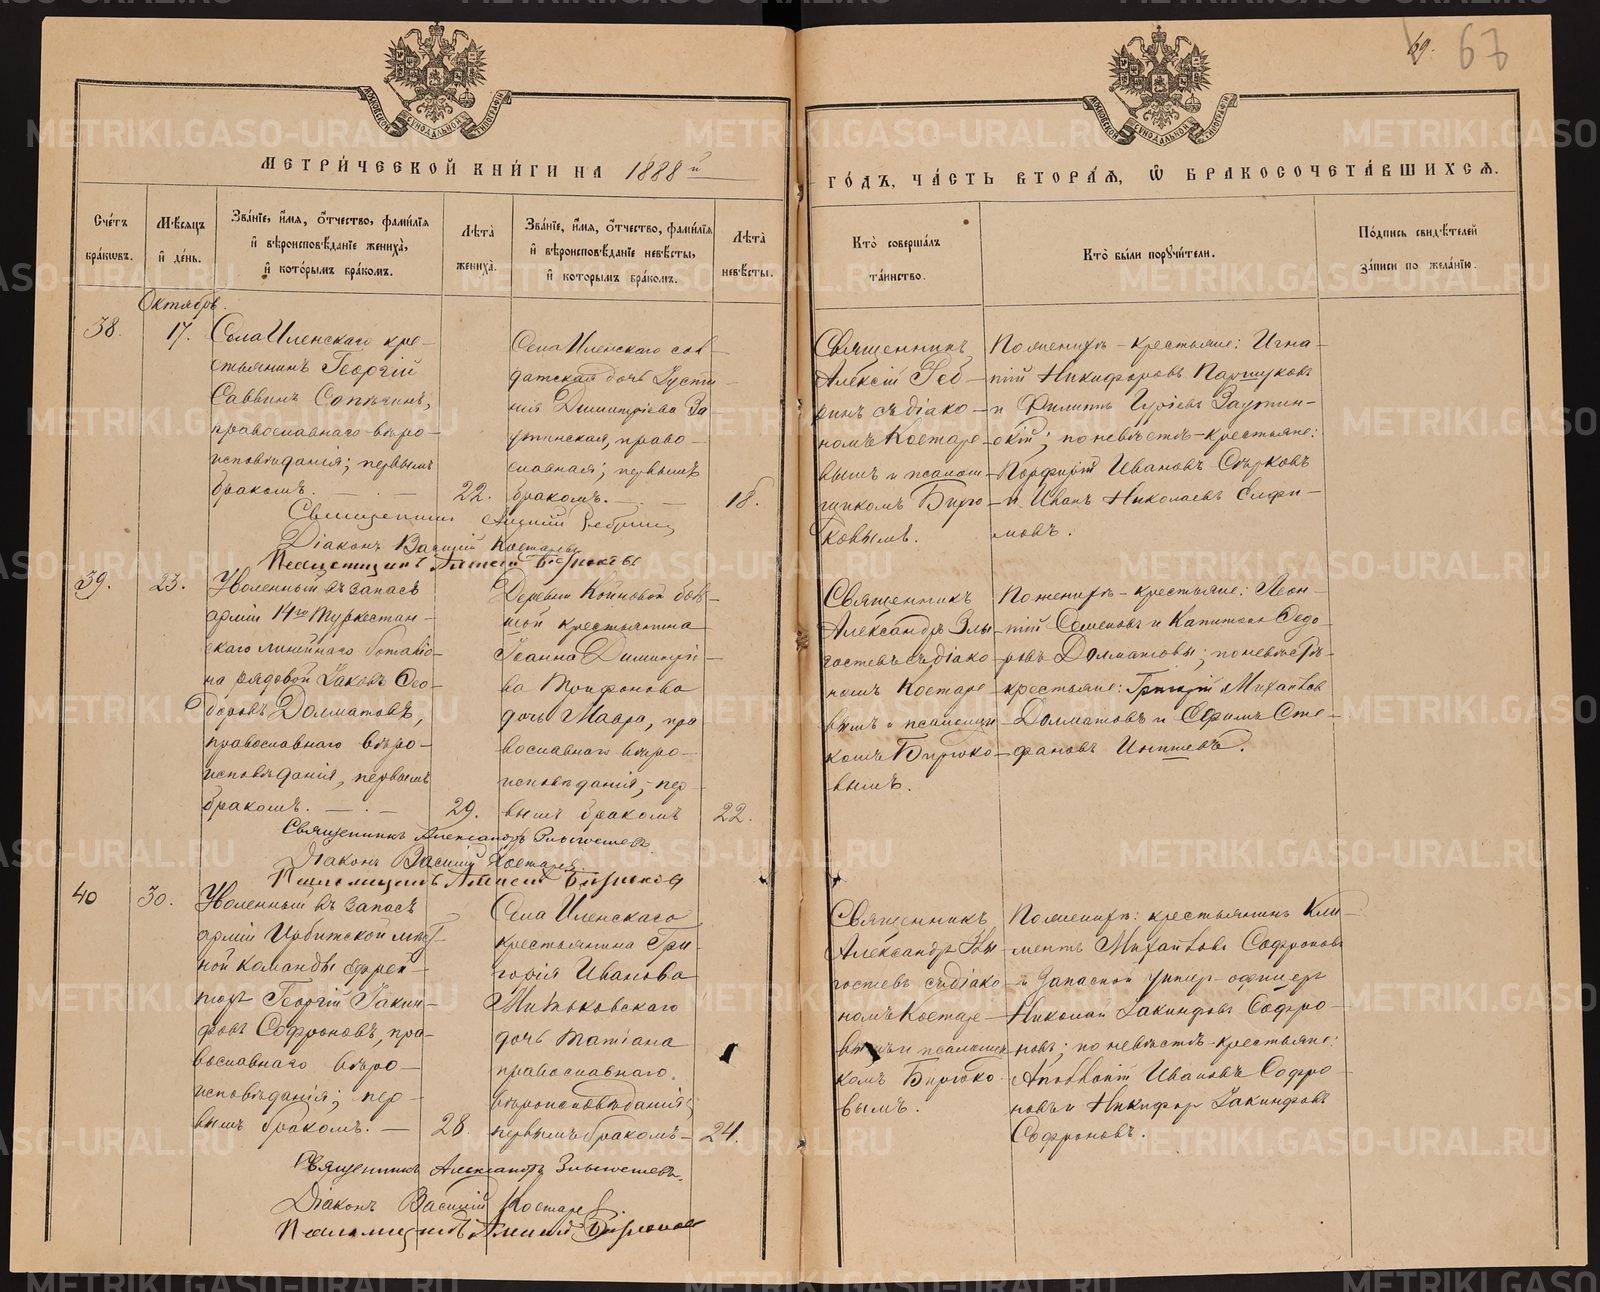 69. 67
МОСКОВСКОЙ СѴНОДАЛЬНОЙ ТИПОГРАФІИ
МОСКОВСКОЙ СѴНОДАЛЬНОЙ ТИПОГРАФІИ
МЕТРИ́ЧЕСКОЙ КНИ́ГИ НА 1888й
ГО́ДЪ, ЧА́СТЬ ВТОРА́Я, Ѽ БРАКОСОЧЕТА́ВШИХСЯ.
Сче́тъ бра́кѡвъ.
Мѣ́сяцъ и҆ де́нь.
Зва́нїе, и҆́мя, ѻ҆́тчество, фами́лїя и҆ вѣроисповѣ́данїе жениха̀, и҆ кото́рымъ бра́комъ.
Лѣта̀ жениха̀.
Зва́нїе, и҆́мя, ѻ҆́тчество, фами́лїя и҆ вѣроисповѣ́данїе невѣ́сты, и҆ которымъ бра́комъ.
Лѣта̀ невѣ́сты.
Кто̀ соверша́лъ та́инство.
Кто̀ бы́ли порꙋчи́тели.
По́дпись свидѣ́телей за́писи по жела́нїю.
Октябрь.
38.
17.
Села Иленскаго кре-
стьянинъ Георгій
Саввинъ
православнаго вѣро-
исповѣданія; первымъ
бракомъ.
22.
Села Иленскаго сол-
датская дочь Густи-
нія Димитріева За-
утинская, право-
славная; первымъ
бракомъ.
18.
Священникъ
Алексій
ринъ съ діако-
номъ Костаре-
вымъ и псалом-
щикомъ Бирю-
ковымъ.
По женихѣ - крестьяне: Игна-
тій Никифоровъ Паршуковъ
и Филиппъ
скій; по невѣстѣ - крестьяне:
Порфирій Ивановъ
и Иванъ Николаевъ Елфи-
мовъ.
Священникъ Алексій
Діаконъ Василій Костаревъ
Псаломщикъ Алексій Бирюковъ
39.
23.
Уволенный въ запасъ
арміи 14го Туркестан-
скаго линейнаго баталіо-
на рядовой Іаковъ Ѳео-
доровъ Долматовъ,
православнаго вѣро-
исповѣданія, первымъ
бракомъ.
29.
Деревни
крестьянина
Іоанна Димитріе-
ва Трифонова
дочь Мавра, пра-
вославнаго вѣро-
исповѣданія, пер-
вымъ бракомъ
22.
Священникъ
Александръ Злы-
гостевъ съ діако-
номъ Костаре-
вымъ и псаломщи-
комъ Бирюко-
вымъ.
По женихѣ - крестьяне: Леон-
тій Семеновъ и Капитонъ Ѳедо-
ровъ Долматовы; по невѣстѣ
крестьяне: Григорій Михайловъ
Долматовъ и Ефимъ Сте-
фановъ
Священникъ Александръ Злыгостевъ.
Діаконъ Василій Костаревъ
Псаломщикъ Алексій Бирюковъ
40
30.
Уволенный въ запасъ
арміи Ирбитской мѣст-
ной команды ефрей-
торъ Георгій Іакин-
фовъ Софроновъ, пра-
вославнаго вѣро-
исповѣданія; пер-
вымъ бракомъ.
28.
Села Иленскаго
крестьянина Гри-
горія Иванова
Митьковскаго
дочь Татіана
православнаго
вѣроисповѣданія;
первымъ бракомъ
24.
Священникъ
Александръ Злы-
гостевъ съ діако-
номъ Костаре-
вымъ и псаломщи-
комъ Бирюко-
вымъ.
По женихѣ: крестьянинъ Кли-
ментъ Михайловъ Софроновъ
и запасной унтер-офицеръ
Николай Іакинфовъ Софро-
новъ; по невѣстѣ - крестьяне:
Аполлоній Ивановъ Софро-
новъ и Никифоръ Іакинфовъ
Софроновъ.
Священникъ Александръ Злыгостевъ.
Діаконъ Василій Костаревъ.
Псаломщикъ Алексій Бирюковъ
METRIKI.GASO-URAL.RU